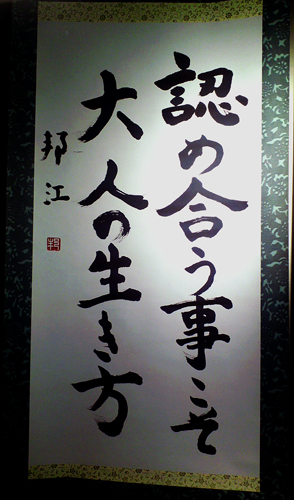 認め合う事こそ
大人の生き方
邦江